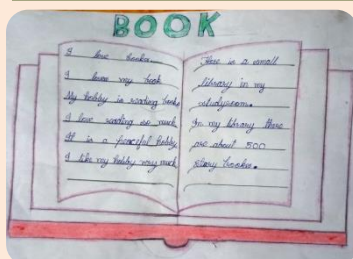 BOOK
I love books.
I love my book
My hobby is reading books
I love reading so much
It is a peaceful hobby
I like my hobby very much
There is a small
library in my
studyroom.
In my library there
are about 500
story books.